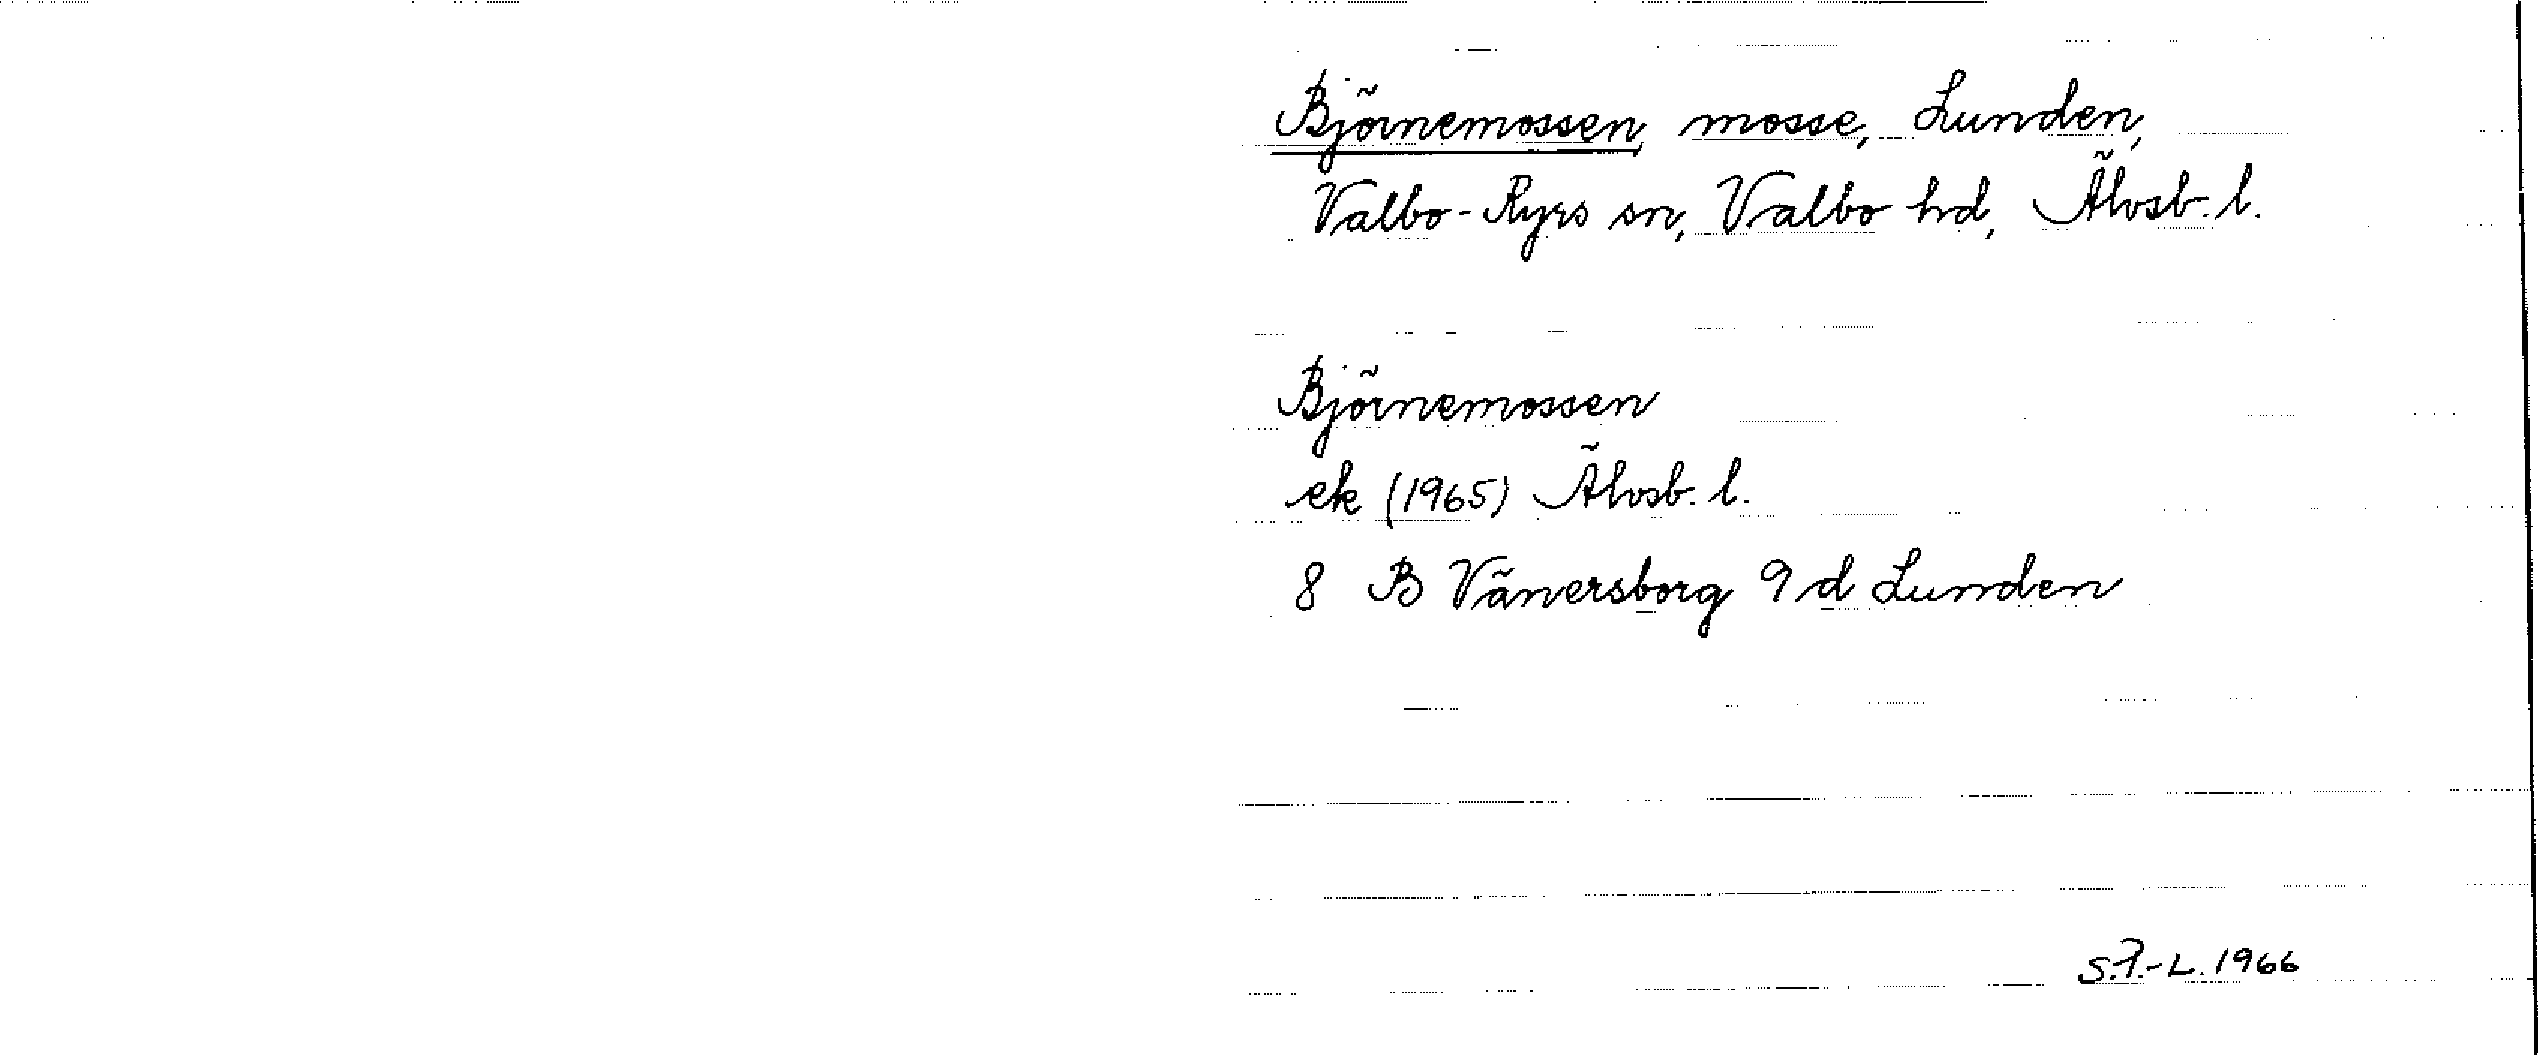 Björnemossen, mosse, Lunden,
Valbo-Ryrs sn, Valbo hd, Älvsb. l.
Björnemossen
ek (1965) Älvsb. l.
8 B Vänersborg 9 d Lunden
S.P.-L. 1966